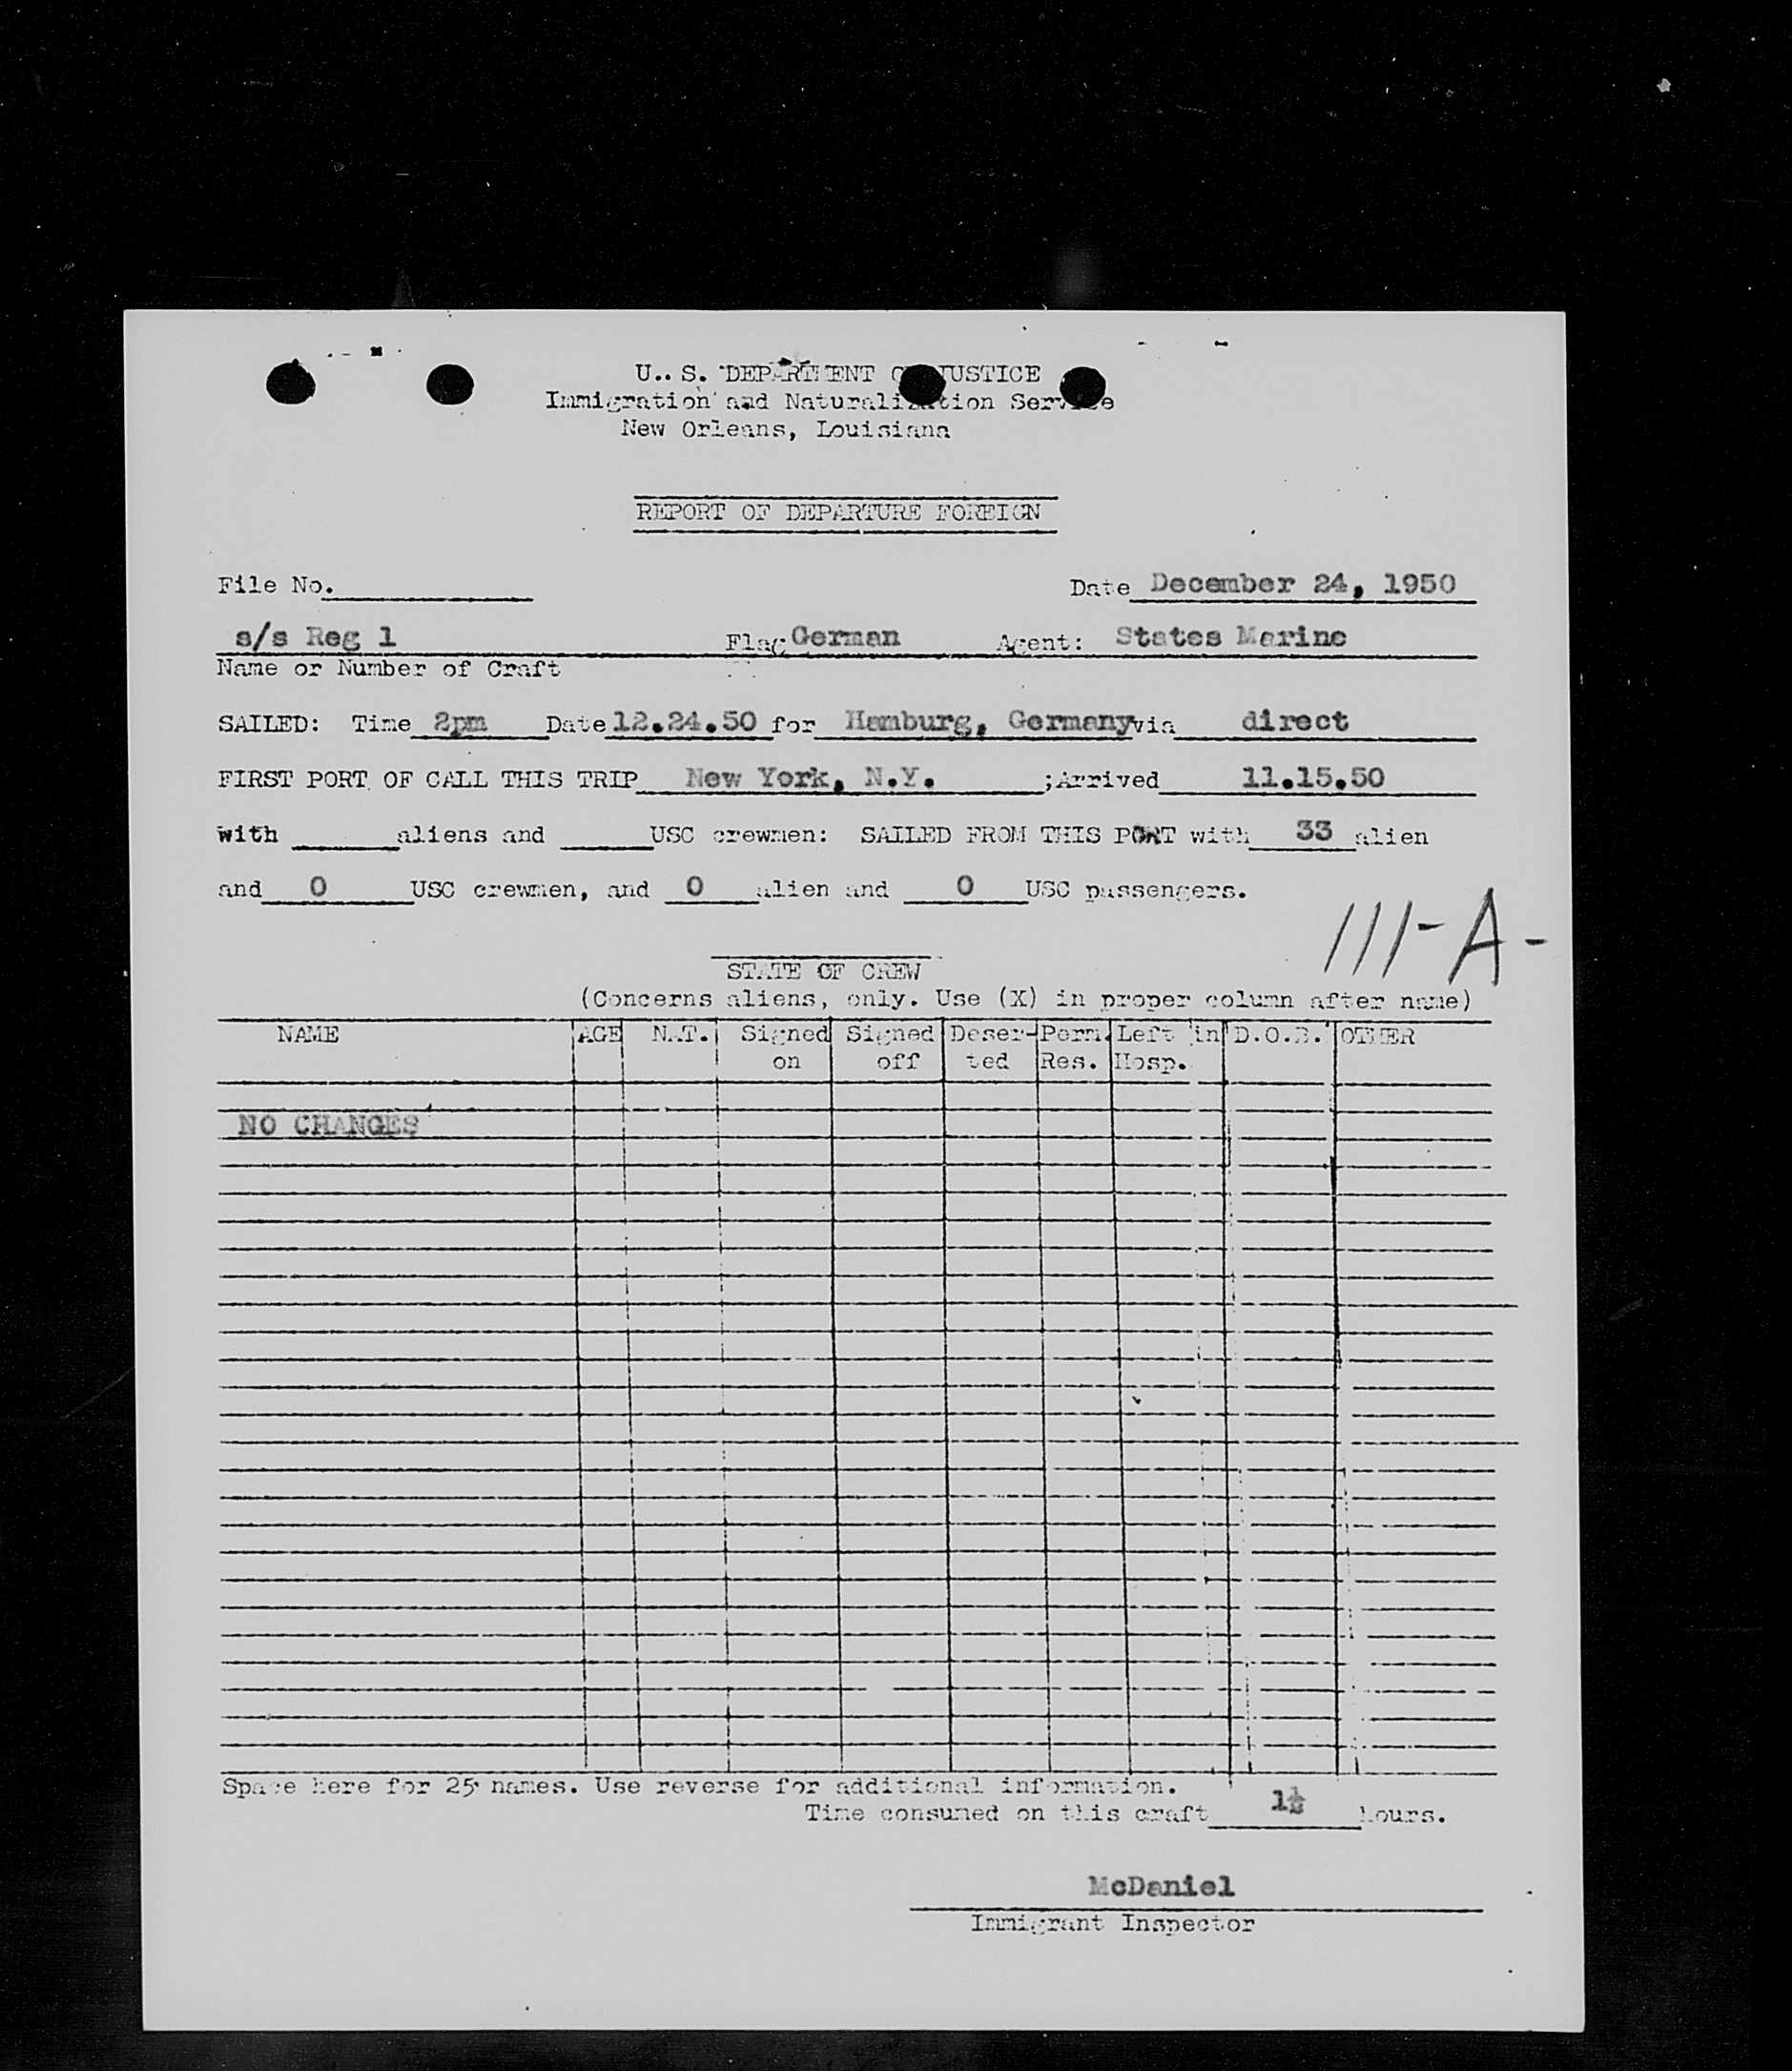 U. S. DEPARTMENT OF JUSTICE
Immigration and Naturalization Service
New Orleans, Louisiana
REPORT OF DEPARTURE FOREIGN
File No. Date December 24, 1950
s/s Reg 1 Flag German Agent: States Marine
Name or Number of Craft
SAILED: Time 2pm Date 12.24.50 for Hamburg, Germany via direct
FIRST PORT OF CALL THIS TRIP New York, N.Y. ;Arrived 11.15.50
with aliens and USC crewmen: SAILED FROM THIS PORT with 33 alien
and 0 USC crewmen, and 0 alien and 0 USC passengers.
111-A-
STATE OF CREW
(Concerns aliens, only. Use (X) in proper column after name)
NAME AGE NAT. Signed Signed Deser- Perm. Left in D.O.B. OTHER
on off ted Res. Hosp.
NO CHANGES
Space here for 25 names. Use reverse for additional information.
Time consumed on this craft 1½ hours.
McDaniel
Immigrant Inspector